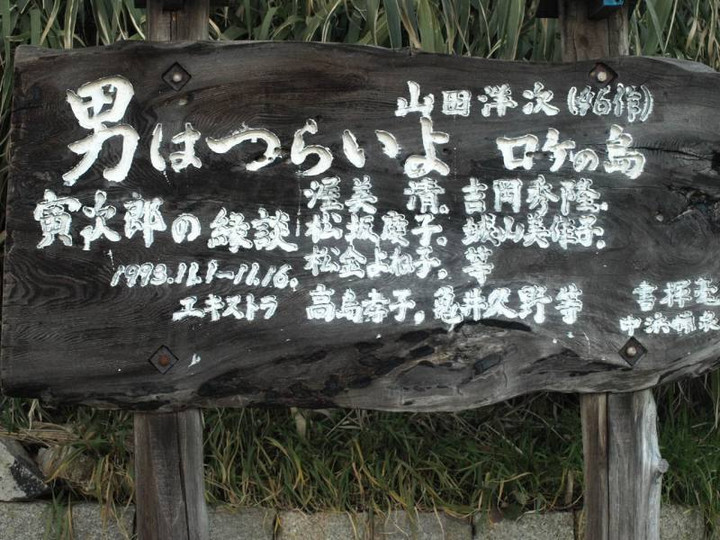 山田洋次(46作)
男はつらいよ ロケの島
寅次郎の縁談
渥美 清.吉岡秀隆.
松坂慶子.城山美佳子.
松金よね子.等
1993.11.1〜11.16.
エキストラ 高島幸子.亀井久野等
書揮毫
中浜